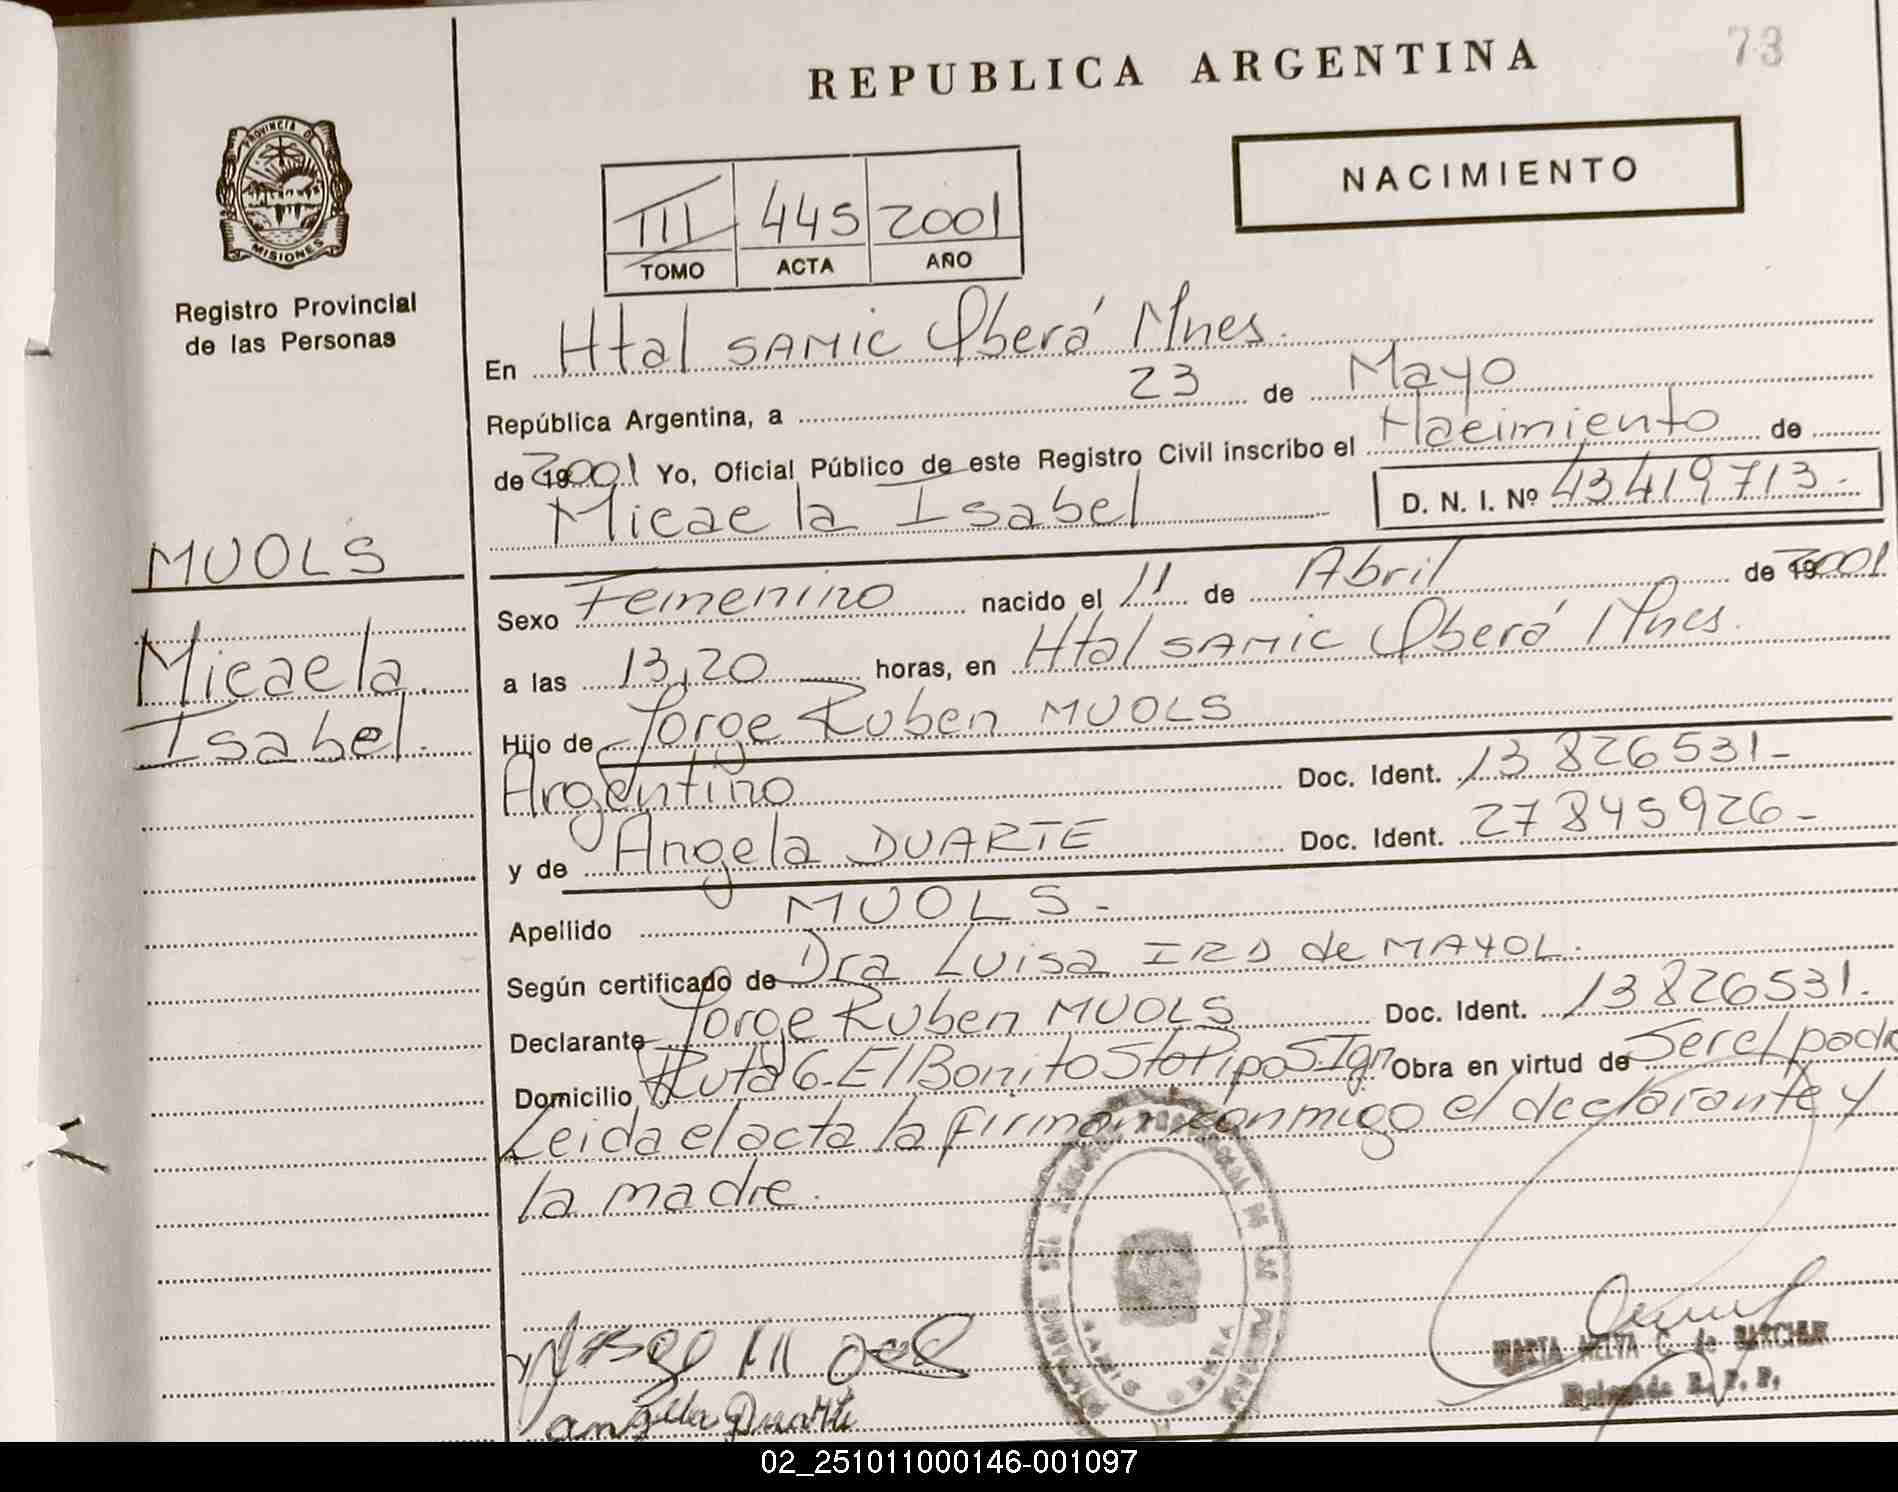 REPUBLICA ARGENTINA
73
PROVINCIA DE
MISIONES
Registro Provincial
de las Personas
NACIMIENTO
III 445 2001
TOMO ACTA AÑO
En Htal SAMIC Oberá Mnes.
República Argentina, a 23 de Mayo
de 19 2001 Yo, Oficial Público de este Registro Civil inscribo el Nacimiento de
Micaela Isabel D. N. I. Nº 43419713.-
MUOLS
Micaela
Isabel.
Sexo Femenino nacido el 11 de Abril de 19 2001
a las 13,20 horas, en Htal SAMIC Oberá Mnes.
Hijo de Jorge Ruben MUOLS
Argentino Doc. Ident. 13826531-
y de Angela DUARTE Doc. Ident. 27845926-
Apellido MUOLS.-
Según certificado de Dra Luisa de MAYOL.
Declarante Jorge Ruben MUOLS Doc. Ident. 13826531.
Domicilio Ruta 6- El Bonito Sto Pipo S Ign Obra en virtud de Ser el padre
Leida el acta la firman conmigo el declarante y
la madre.
Angela Duarte
MARTA C. de
R. P. P.
02_251011000146-001097